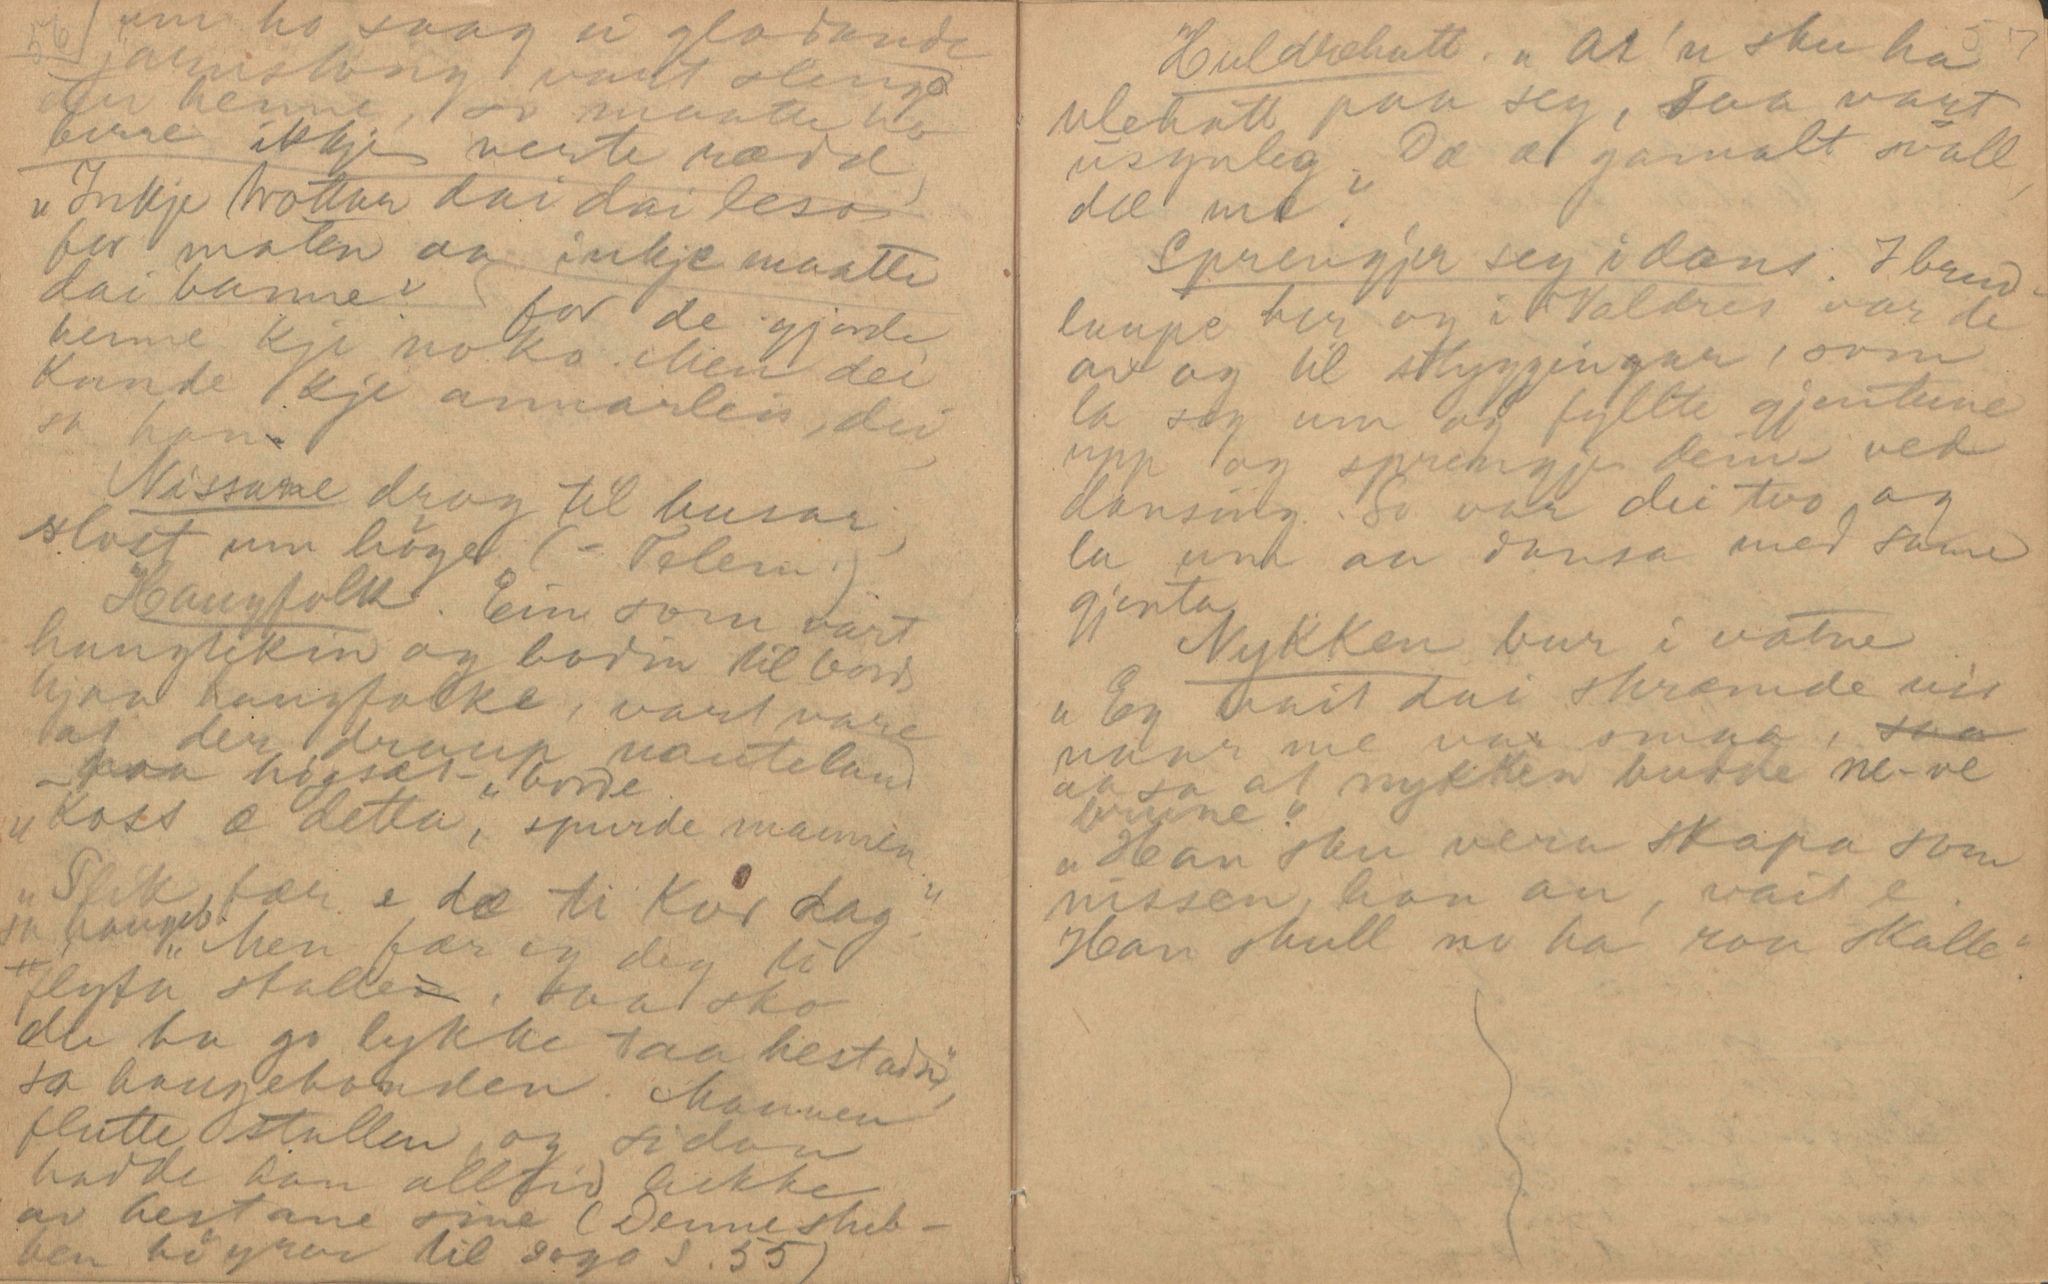 56
um ho saag ei glodande
jarnstong vart slengd
etter henne, so maatte ho
berre ikkje verte rædd,
"Inkje brottar dai dai leso
for maten aa inkje maatte
dai banne" for de gjorde
henne kje noko. Men dei
kunde kje annarleis, dei,
sa han.
Nissane drog til husar,
slost um höye. (- Telem.)
Haugfolk. Ein som vart
haugtekin og bodin til bords
hjaa haugfolke, vart vare
at der draup nauteland
paa högsæt-borde
"Koss æ detta", spurde mannen
"Slik fær e dæ ti kvor dag"
sa haugeb.
"Men fær eg deg te
flyta stallen, saa sko
du ha go lykke taa hestadn",
sa haugebonden. Mannen
flutte stallen og sidan
hadde han alltid lukke
av hestane sine (Denne stub-
ben höyrer til soga s. 55)
57
Huldrehatt. "At 'n sku ha
ulehatt paa seg, saa vart
usynleg. Dæ æ gamalt svall,
dæ mæ".
Sprengjer seg i dans. I brud-
laupe her og i Valdres var de
av og til styggingar, som
la seg um og fyllte gjentune
upp og sprengje deim ved
dansing. So var dei two og
la um aa dansa med same
gjenta.
Nykken bur i vatne
"Eg vait dai skræmde vis
naar me var smaa,
aa sa at nykken budde ne-ve
brune"
"Han sku vera skapa som
nissen, han au, vait e.
Han skull no ha rau skalle"